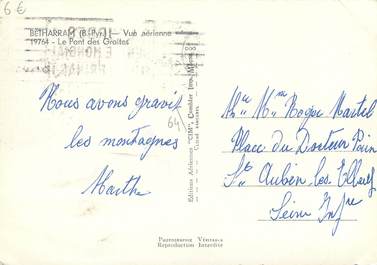 6 €
BETHARRAM (B.-Pyr.) — Vue aérienne
19764 - Le Pont des Grottes
Nous avons gravit
les montagnes
Marthe
64
Editions Aériennes "CIM", Combier Imp. Mâcon
Mr Mme Roger Martel
Place du Docteur
St Aubin les Elbeuf
Seine Infre
Photographie Véritable
Reproduction Interdite